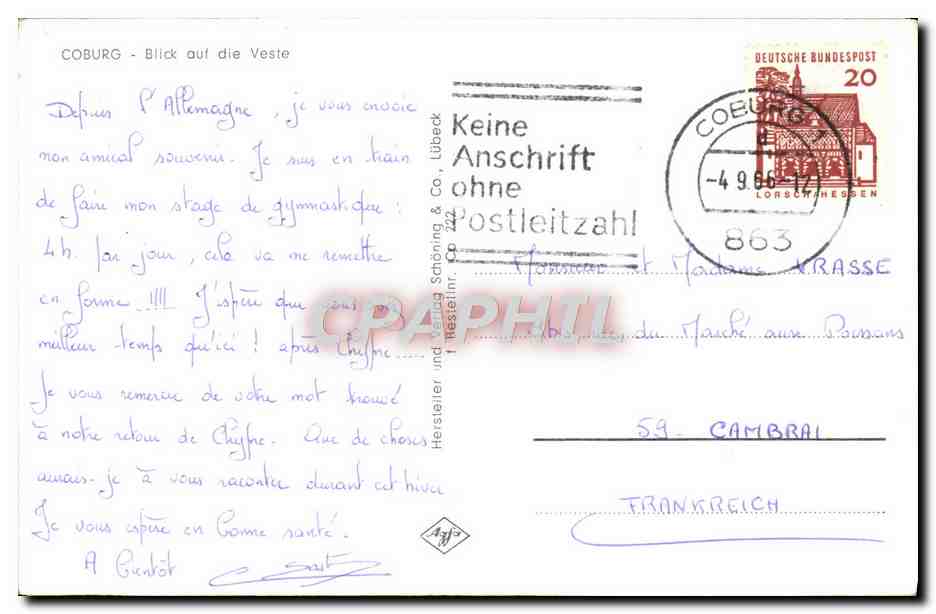 COBURG - Blick auf die Veste
Depuis l'Allemagne, je vous envoie
mon amical souvenir. Je suis en train
de faire mon stage de gymnastique :
4h. par jour, cela va me remettre
en forme !!!! J'espère que vous avez
meilleur temps qu'ici ! après Chypre.....
Je vous remercie de votre mot trouvé
à notre retour de Chypre. Que de choses
aurais-je à vous raconter durant cet hiver
Je vous espère en bonne santé.
A bientôt
Hersteller und Verlag Schöning & Co., Lübeck
Bestellnr. Co 222
Keine
Anschrift
ohne
Postleitzahl
COBURG 1
d
-4.9.66-12
863
DEUTSCHE BUNDESPOST
20
LORSCH/HESSEN
Monsieur et Madame VRASSE
rue du Marché aux Poissons
59 - CAMBRAI
FRANKREICH
CPAPHIL